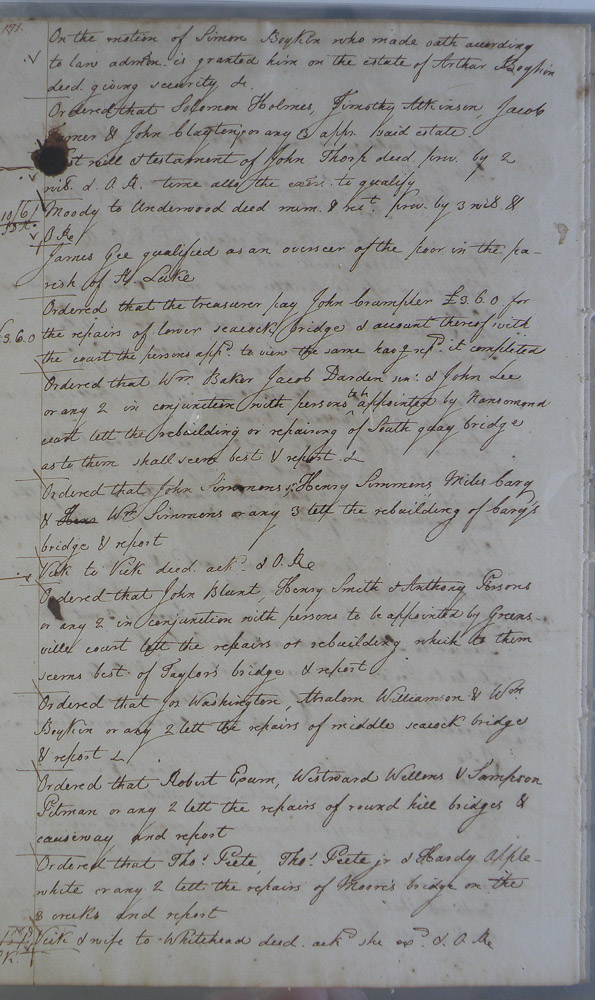 On the motion of Simon Boykin who made oath according
to law admon. is granted him on the estate of Arthur Boykin
deed. giving security &.
Ordered that Solomon Holmes, Timothy Atkinson, Jacob
Turner & John Clayton, or any 3 appr. said estate
Last will & testament of John Thorp deed. prov. by 2
wit. & O. Re. time all the exor. to qualify
Moody to Underwood deed mem. & prov. by 3 wit. &
O Re
James Gee qualified as an overseer of the poor in the pa-
rish of St. Luke
Ordered that the treasurer pay John Crumpler £3.6.0 for
£3.6.0 the repairs of lower seacock bridge & account thereof with
the court the persons appd. to view the same havg. repd. it completed
Ordered that Wm. Baker Jacob Darden senr. & John Lee
or any 2 in conjunction with persons to be appointed by Nansemond
court lett the rebuilding or repairing of South quay bridge
as to them shall seem best & report &
Ordered that John Simmons, Henry Simmons Miles Cary
& Wm. Simmons or any 3 lett the rebuilding of Cary's
bridge & report
Vick to Vick deed ackd. & O. Re
Ordered that John Blunt, Henry Smith & Anthony Persons
or any 2 in conjunction with persons to be appointed by Greens-
ville court lett the repairs or rebuilding which to them
seems best of Taylor's bridge & report
Ordered that Jos Washington, Absalom Williamson & Wm.
Boykin or any 2 lett the repairs of middle seacock bridge
& report &
Ordered that Robert Exum, Westward Wellons & Sampson
Pitman or any 2 lett the repairs of round hill bridges &
causeway and report
Ordered that Thos. Peete, Thos. Peete jr & Hardy Apple-
white or any 2 lett the repairs of Moore's bridge on the
8 weeks and report
Vick & wife to Whitehead deed. ackd. she exd. & O. Re